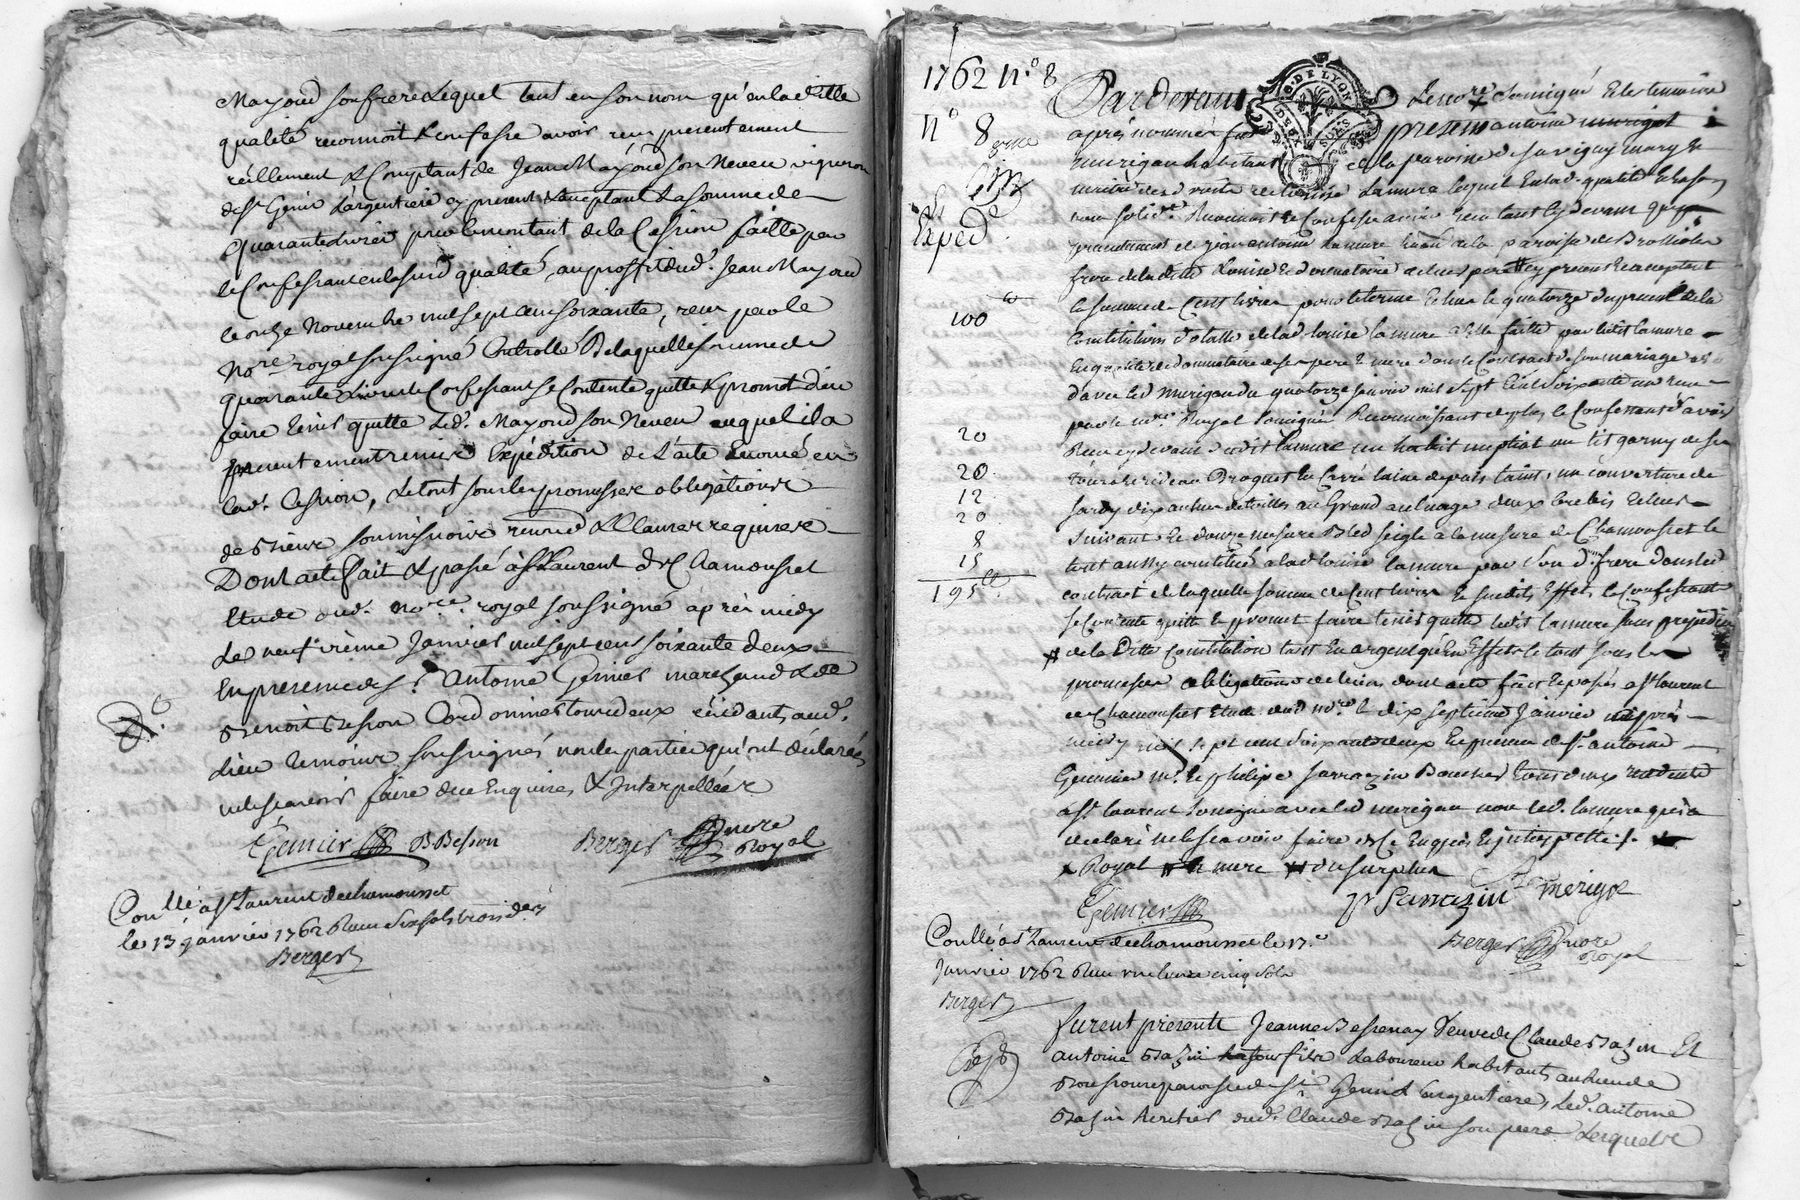 Mayoud son frere Lequel tant en son nom qu'en lad. ditte
qualité reconnoit & confesse avoir reçu presentement
réellement & Comptant de Jean Mayoud son Neveu vigneron
de St Genis L'argentiere cy present & acceptant La somme de
Quarante Livres pour le montant de la Cession faitte par
le Confessant en lasusd qualité au proffit dud. Jean Mayoud
le onze Novembre mil sept cens soixante, reçu par le
No.re royal soussigné Controllé De laquelle somme de
quarante Livres le Confessant se Contente quitte & promet d'en
faire tenir quitte Led. Mayoud son Neveu auquel il a
presentement remis Expédition de L'acte Enoncé en
lad. Cession, Le tout sous les promesses obligations
de Biens soumissions renonc. & Clauses requises
Dont acte Fait & passé à St Laurent de Chamousset
Etude dud. no.re royal soussigné après midy
Le neuvième Janvier mil sept cens soixante deux
En presence de Sr. Antoine Genier marchand & de
Benoit Besson Cordonnier tous deux résidants aud.
Lieu temoins soussignés non les parties qui ont déclarés
ne le sçavoir faire de ce Enquises & Interpellées
Genier BBesson Berger nore Royal
Con.llé à St Laurent de chamousset
le 13 janvier 1762 Reçu six sols trois d.ers
Berger
1762 n.o 8
n.o 8
Exped
100
20
20
12
20
8
15
195 tt
Pardevant Le no.re soussigné et les temoins
GN. DE LYON
après nommés fut present antoine
murigau habitant de la paroisse de Savigny mary &
maitre des droits de Louise Lamure lequel en lad. qualité
reconnoit & Confesse avoir reçu tant cy devant que
presentement de jean antoine Lamure de la paroisse de Brossieles
frere de la ditte Louise & donnataire de leur pere cy present & acceptant
la somme de Cent livres pour le terme Echu le quatorze du present de la
Constitution dotalle de lad. Louise Lamure a elle faitte par ledit Lamure
En qualité de donnataire de ses pere & mere dans le Contract de son mariage
d'avec led murigau du quatorze janvier mil sept Cent Soixante un reçu
par le no.re Royal soussigné Reconnoissant de plus le Confessant d'avoir
Reçu cy devant dudit Lamure un habit nuptial un lit garny de son
tour de rideau une couverture de
dix aulnes de toilles au Grand aulnage deux brebis
Suivant & douze mesure Bled seigle à la mesure de Chamousset le
tout aussy constitué a lad Louise Lamure par sond. frere dans led
contract de laquelle somme de Cent livres & susdits Effets le Confessant
se Contente quitte & promet faire tenir quitte ledit Lamure sans prejudice
de la ditte Constitution tant En argent qu'En Effets le tout sous les
promesses obligations de biens dont acte fait & passé a St Laurent
de Chamousset Etude dud no.re le dix septieme Janvier après
midy mil sept cent soixante deux En presence de Sr. antoine
Genier m.d & philipe Sarrazin Boucher tous deux residents
a St Laurent soussignés avec led murigau non led. lamure qui a
declaré ne le sçavoir faire de Ce Enquis & interpellé
Royal & mere du surplus
Genier P Sarrazin Merigot
Berger nore Royal
Con.llé à St Laurent de chamousset le 17.e
Janvier 1762 Reçu une livre cinq sols
Berger
Exp
furent presents Jeanne Bessenay Veuve de Claude Bazin Et
antoine Bazin son fils Laboureur habitants au lieu de
paroisse de St Genis L'argentiere, Led. antoine
Bazin héritier dud. Claude Bazin son pere Lesquels